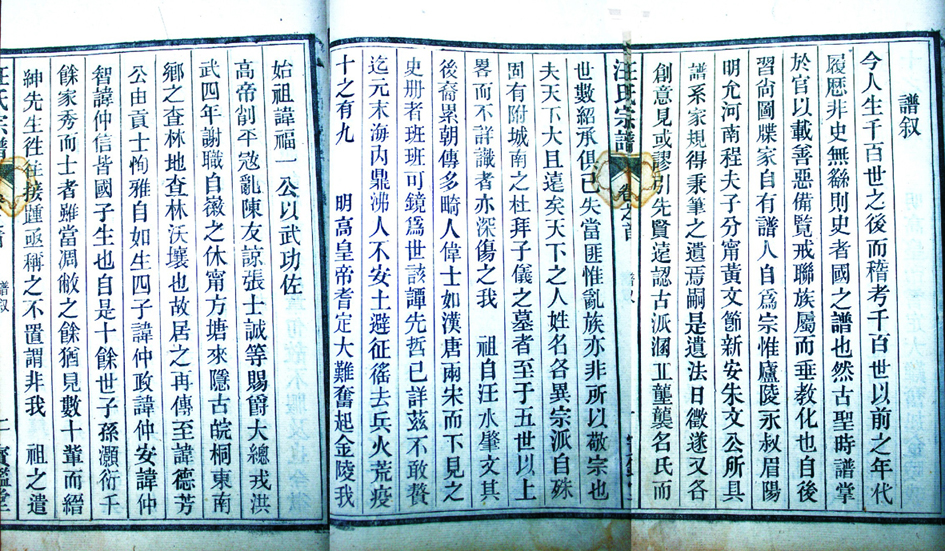 譜叙
今人生千百世之後而稽考千百世以前之年代
履歷非史無繇則史者國之譜也然古聖時譜掌
於官以載善惡備覽戒聯族屬而垂教化也自後
習尙圖牒家自有譜人自爲宗惟廬陵永叔眉陽
明允河南程夫子分甯黃文節新安朱文公所具
譜系家規得秉筆之遺焉嗣是遺法日微遂又各
創意見或謬引先賢遠認古派溷丘壟襲名氏而
汪氏宗譜
卷之首
譜叙
世數紹承俱已失當匪惟亂族亦非所以敬宗也
夫天下大且遠矣天下之人姓名各異宗派自殊
固有附城南之杜拜子儀之墓者至于五世以上
畧而不詳識者亦深傷之我 祖自汪水肇文其
後裔累朝傳多畸人偉士如漢唐兩宋而下見之
史册者班班可鏡爲世該譚先哲已詳茲不敢贅
迄元末海內鼎沸人不安土避征徭去兵火荒疫
十之有九 明高皇帝耆定大難奮起金陵我
始祖諱福一公以武功佐
高帝剷平冦亂陳友諒張士誠等賜爵大總戎洪
武四年謝職自徽之休甯方塘來隱古皖桐東南
鄉之查林地查林沃壤也故居之再傳至諱德芳
公由貢士恂雅自如生四子諱仲政諱仲安諱仲
智諱仲信皆國子生也自是十餘世子孫灝衍千
餘家秀而士者難當凋敝之餘猶見數十輩而縉
紳先生徃往接踵亟稱之不置謂非我 祖之遺
汪氏宗譜
譜叙